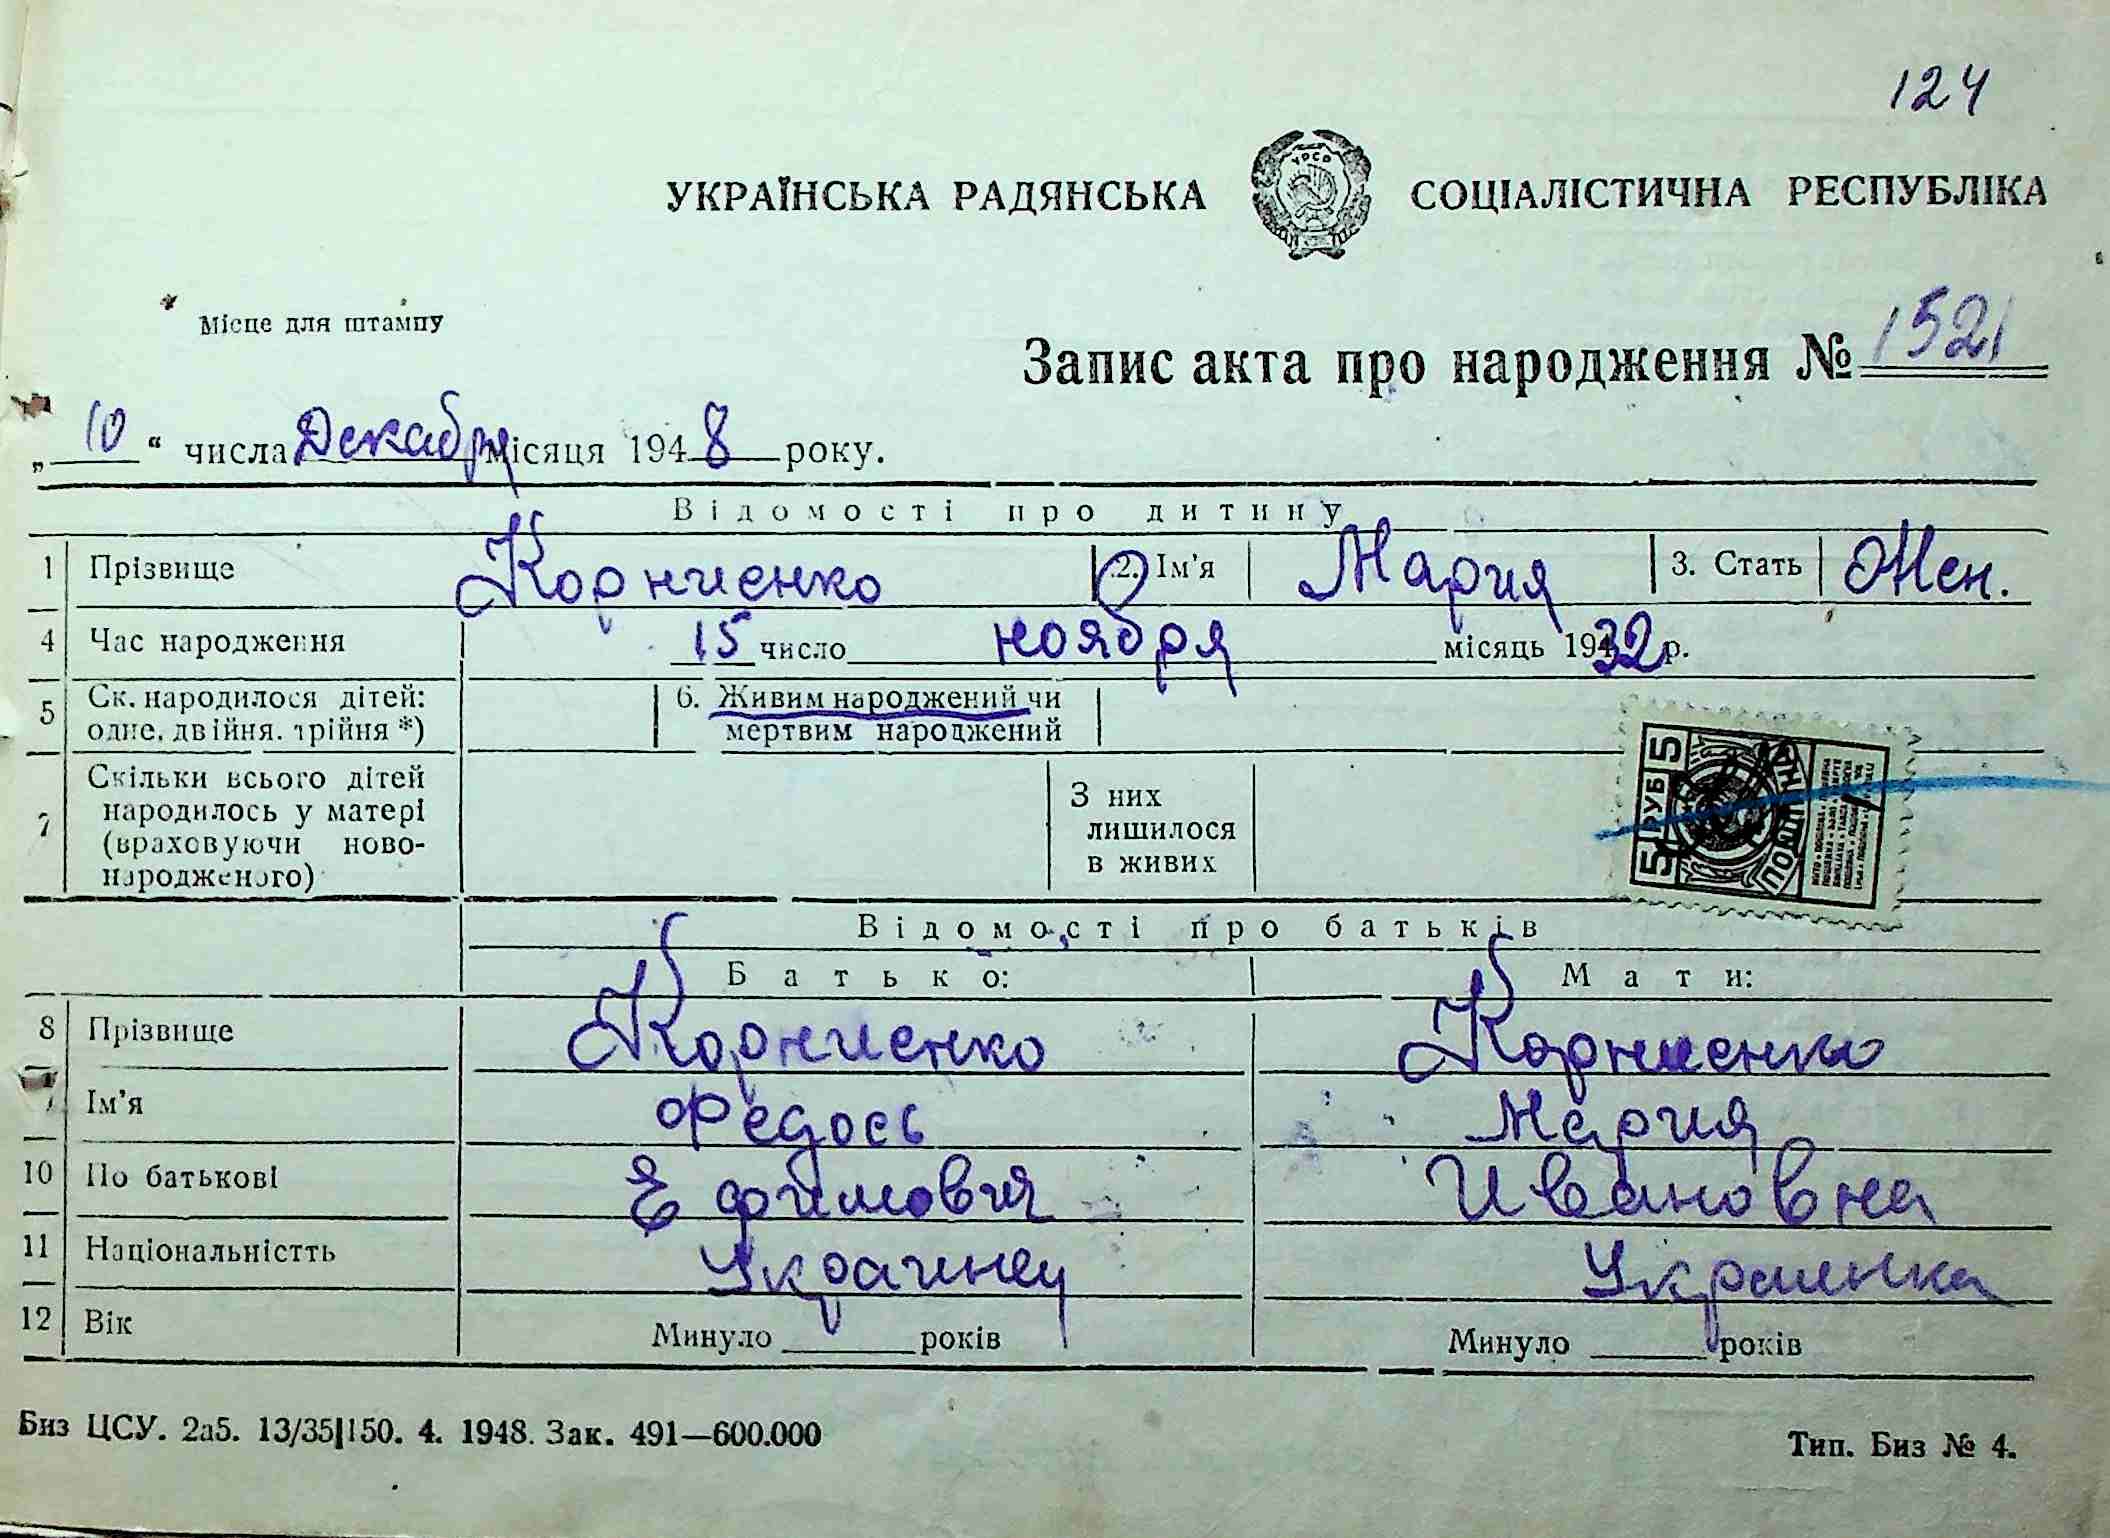 124
УКРАЇНСЬКА РАДЯНСЬКА СОЦІАЛІСТИЧНА РЕСПУБЛІКА
УРСР
Місце для штампу
Запис акта про народження № 1521
„ 10 “ числа Декабря місяця 1948 року.
Відомості про дитину
1 Прізвище Корниенко 2. Ім'я Мария 3. Стать Жен.
4 Час народження 15 число ноября місяць 1932 р.
5 Ск. народилося дітей: одне, двійня, трійня *) 6. Живим народжений чи мертвим народжений
7 Скільки всього дітей народилось у матері (враховуючи новонародженого) З них лишилося в живих
5 РУБ 5
Відомості про батьків
Батько: Мати:
8 Прізвище Корниенко Корниенко
Ім'я Федось Мария
10 По батькові Ефимовия Ивановна
11 Національністть Украинец Украинка
12 Вік Минуло ____ років Минуло ____ років
Биз ЦСУ. 2а5. 13/35|150. 4. 1948. Зак. 491—600.000 Тип. Биз № 4.